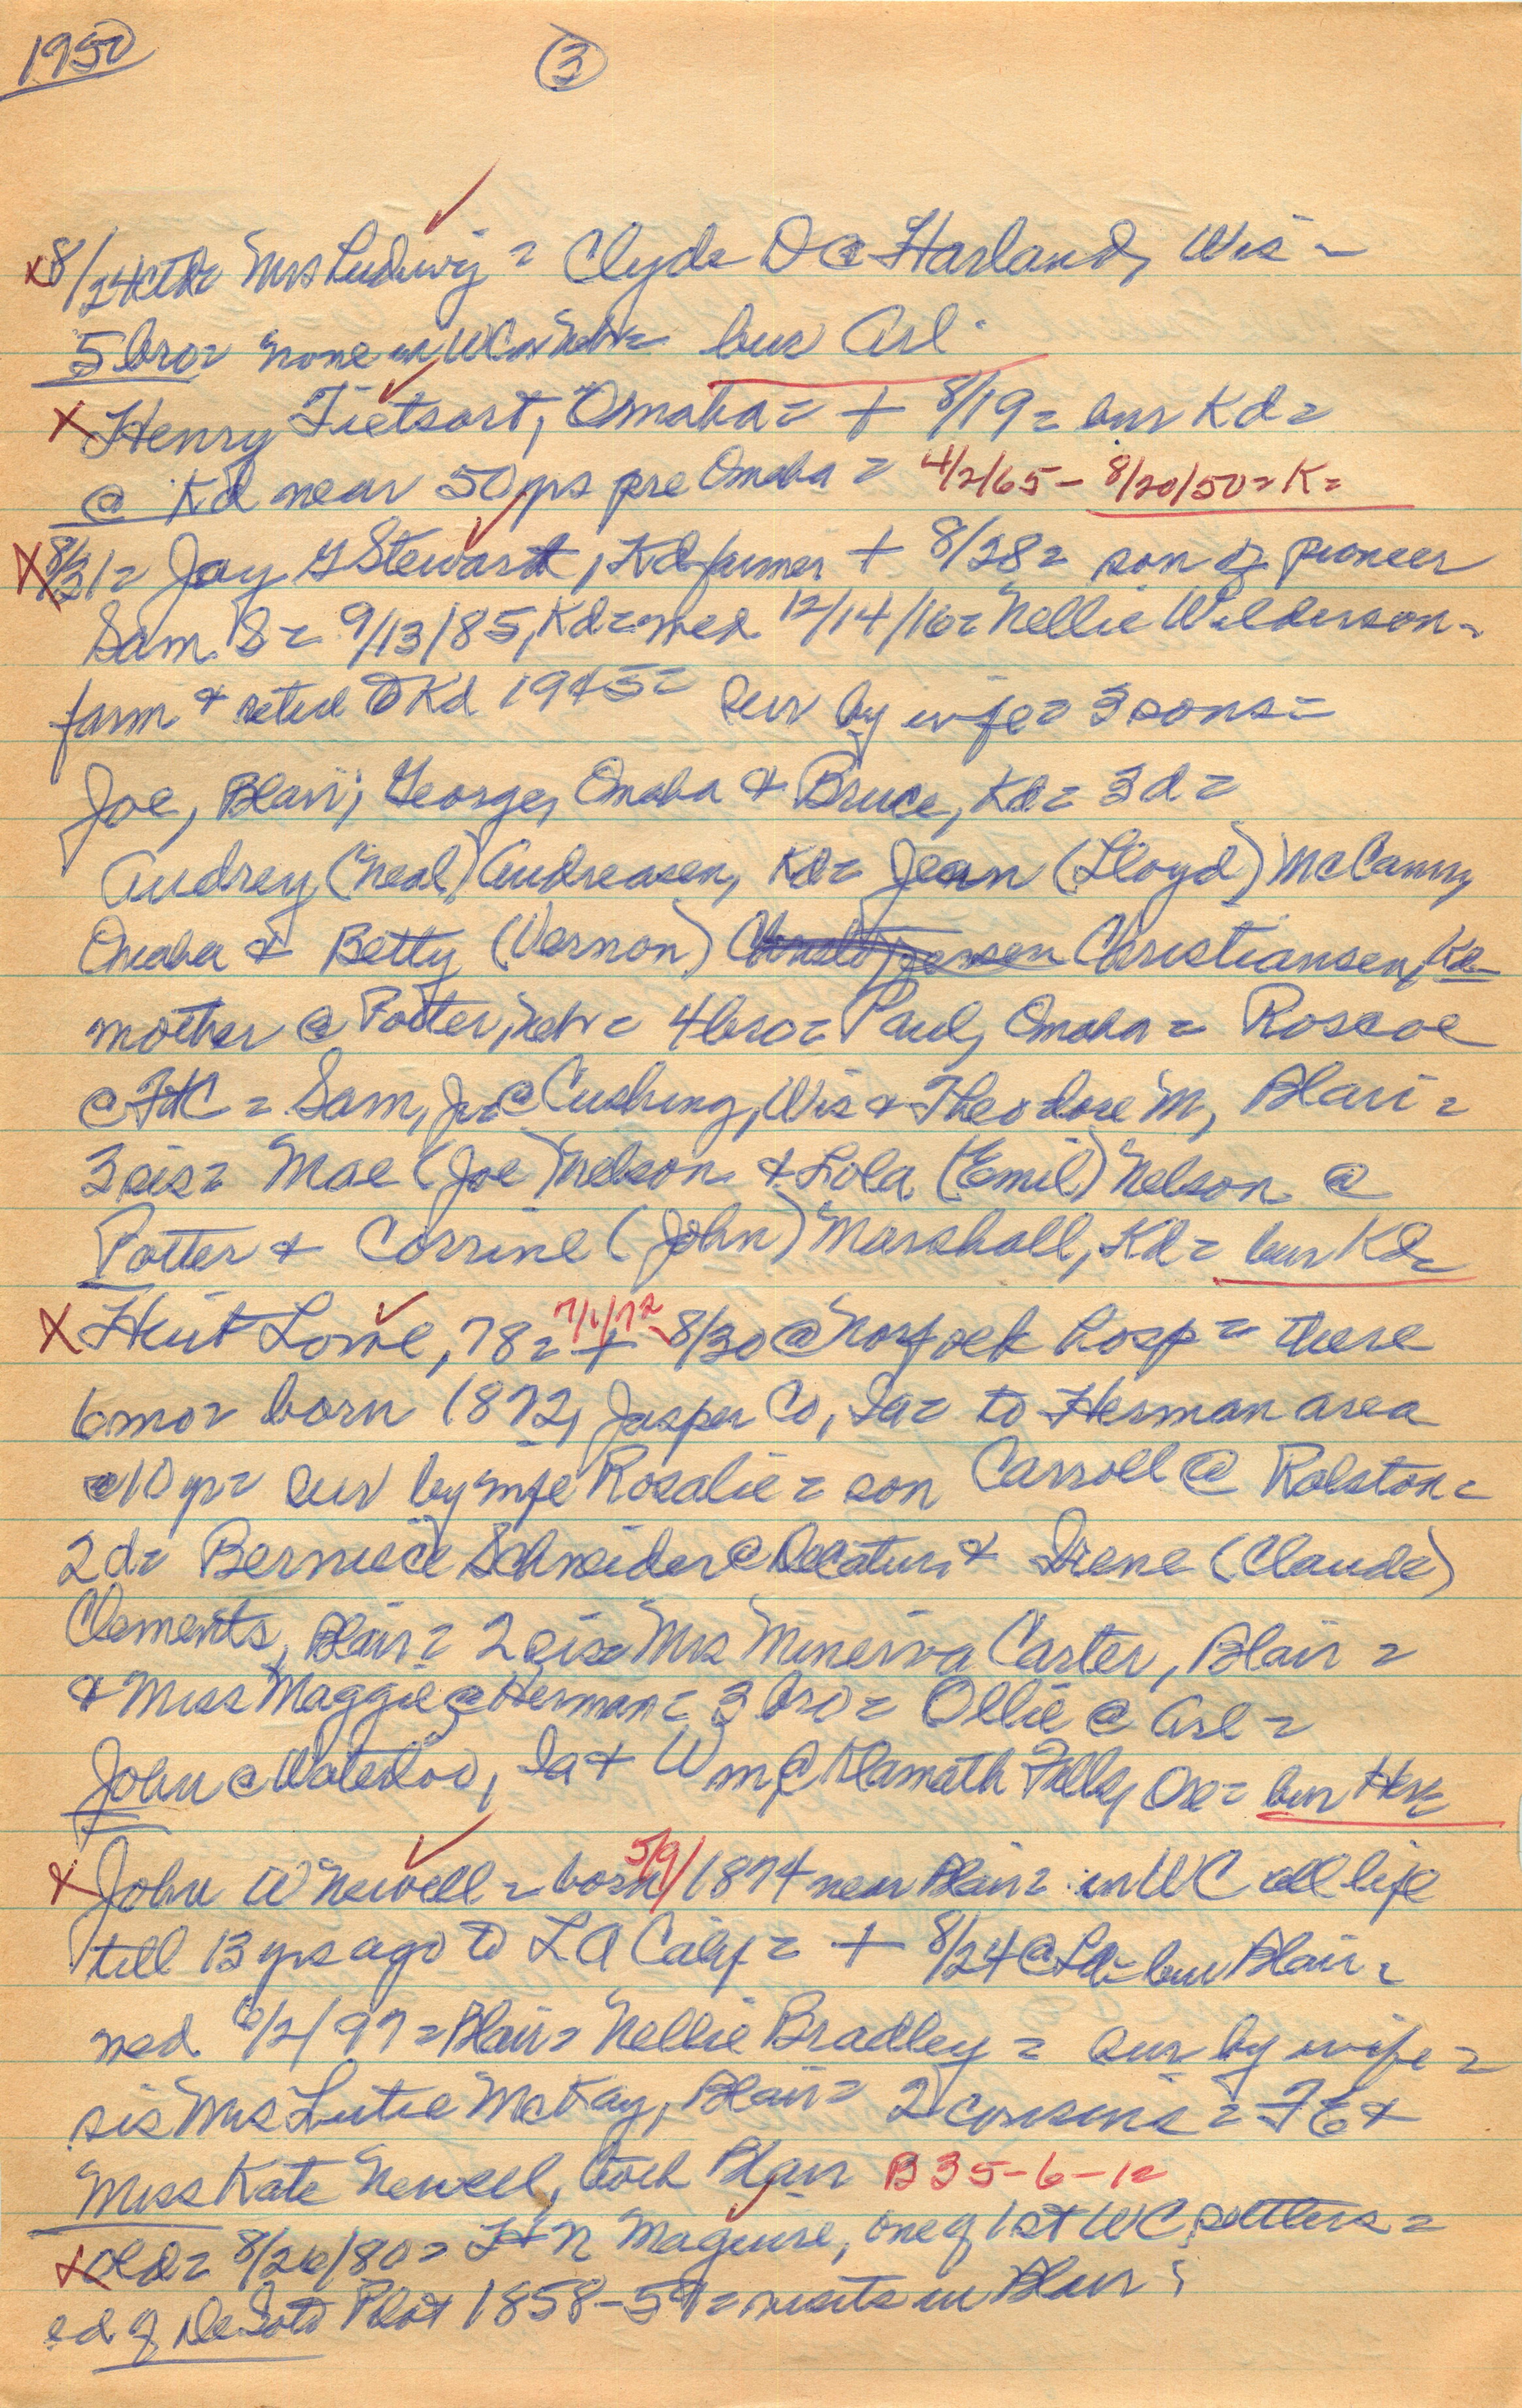 1950 ③
x8/24 Mrs Ludwig = Clyde O @ Harland, Wis =
5 bro = none in WC or Nebr = bur Arl
X Henry Tietsort, Omaha = + 8/19 = bur Kd =
@ Kd near 50 yrs pre Omaha = 4/2/65 - 8/20/50 = K =
X 8/31 = Jay G Stewart, Kd farmer + 8/28 = son of pioneer
Sam S = 9/13/85, Kd = wed 12/14/16 = Nellie Wilderson =
farm & retire to Kd 1945 = sur by wife = 3 sons =
Joe, Blair; George, Omaha & Bruce, Kd = 3 d =
Audrey (Neal) Andreasen, Kd = Jean (Lloyd) McCanny
Omaha & Betty (Vernon) Christiansen, Kd =
mother @ Potter, Nebr = 4 bro = Paul, Omaha = Roscoe
@ FtC = Sam, Jr @ Cushing, Wis & Theodore M, Blair =
3 sis = Mae (Joe) Nelson & Lola (Emil) Nelson @
Potter & Corrine (John) Marshall, Kd = bur Kd =
X Lowe, 78 = 7/1/72 + 8/30 @ Norfolk hosp = there
6 mo = born 1872, Jasper Co, Ia = to Herman area
@ 10 yr = sur by wife Rosalie = son Carroll @ Ralston =
2 d = Berniece Schneider @ Decatur & Irene (Claude)
Clements, Blair = 2 sis = Mrs Minerva Carter, Blair =
& Miss Maggie @ Herman = 3 bro = Ollie @ Arl =
John @ Waterloo, Ia & Wm @ Klamath Falls, Ore = bur Her =
X John W Newell = born 5/9/1874 near Blair = in WC all life
till 13 yrs ago to LA Calif = + 8/24 @ LA = bur Blair =
wed 6/2/97 = Blair = Nellie Bradley = sur by wife =
sis Mrs Lutie McKay, Blair = 2 cousins = F E &
Miss Kate Newell, both Blair B35-6-12
X Old = 8/26/80 = H N Maguire, one of 1st WC settlers =
ed of DeSoto Pilot 1858-59 = visits in Blair;